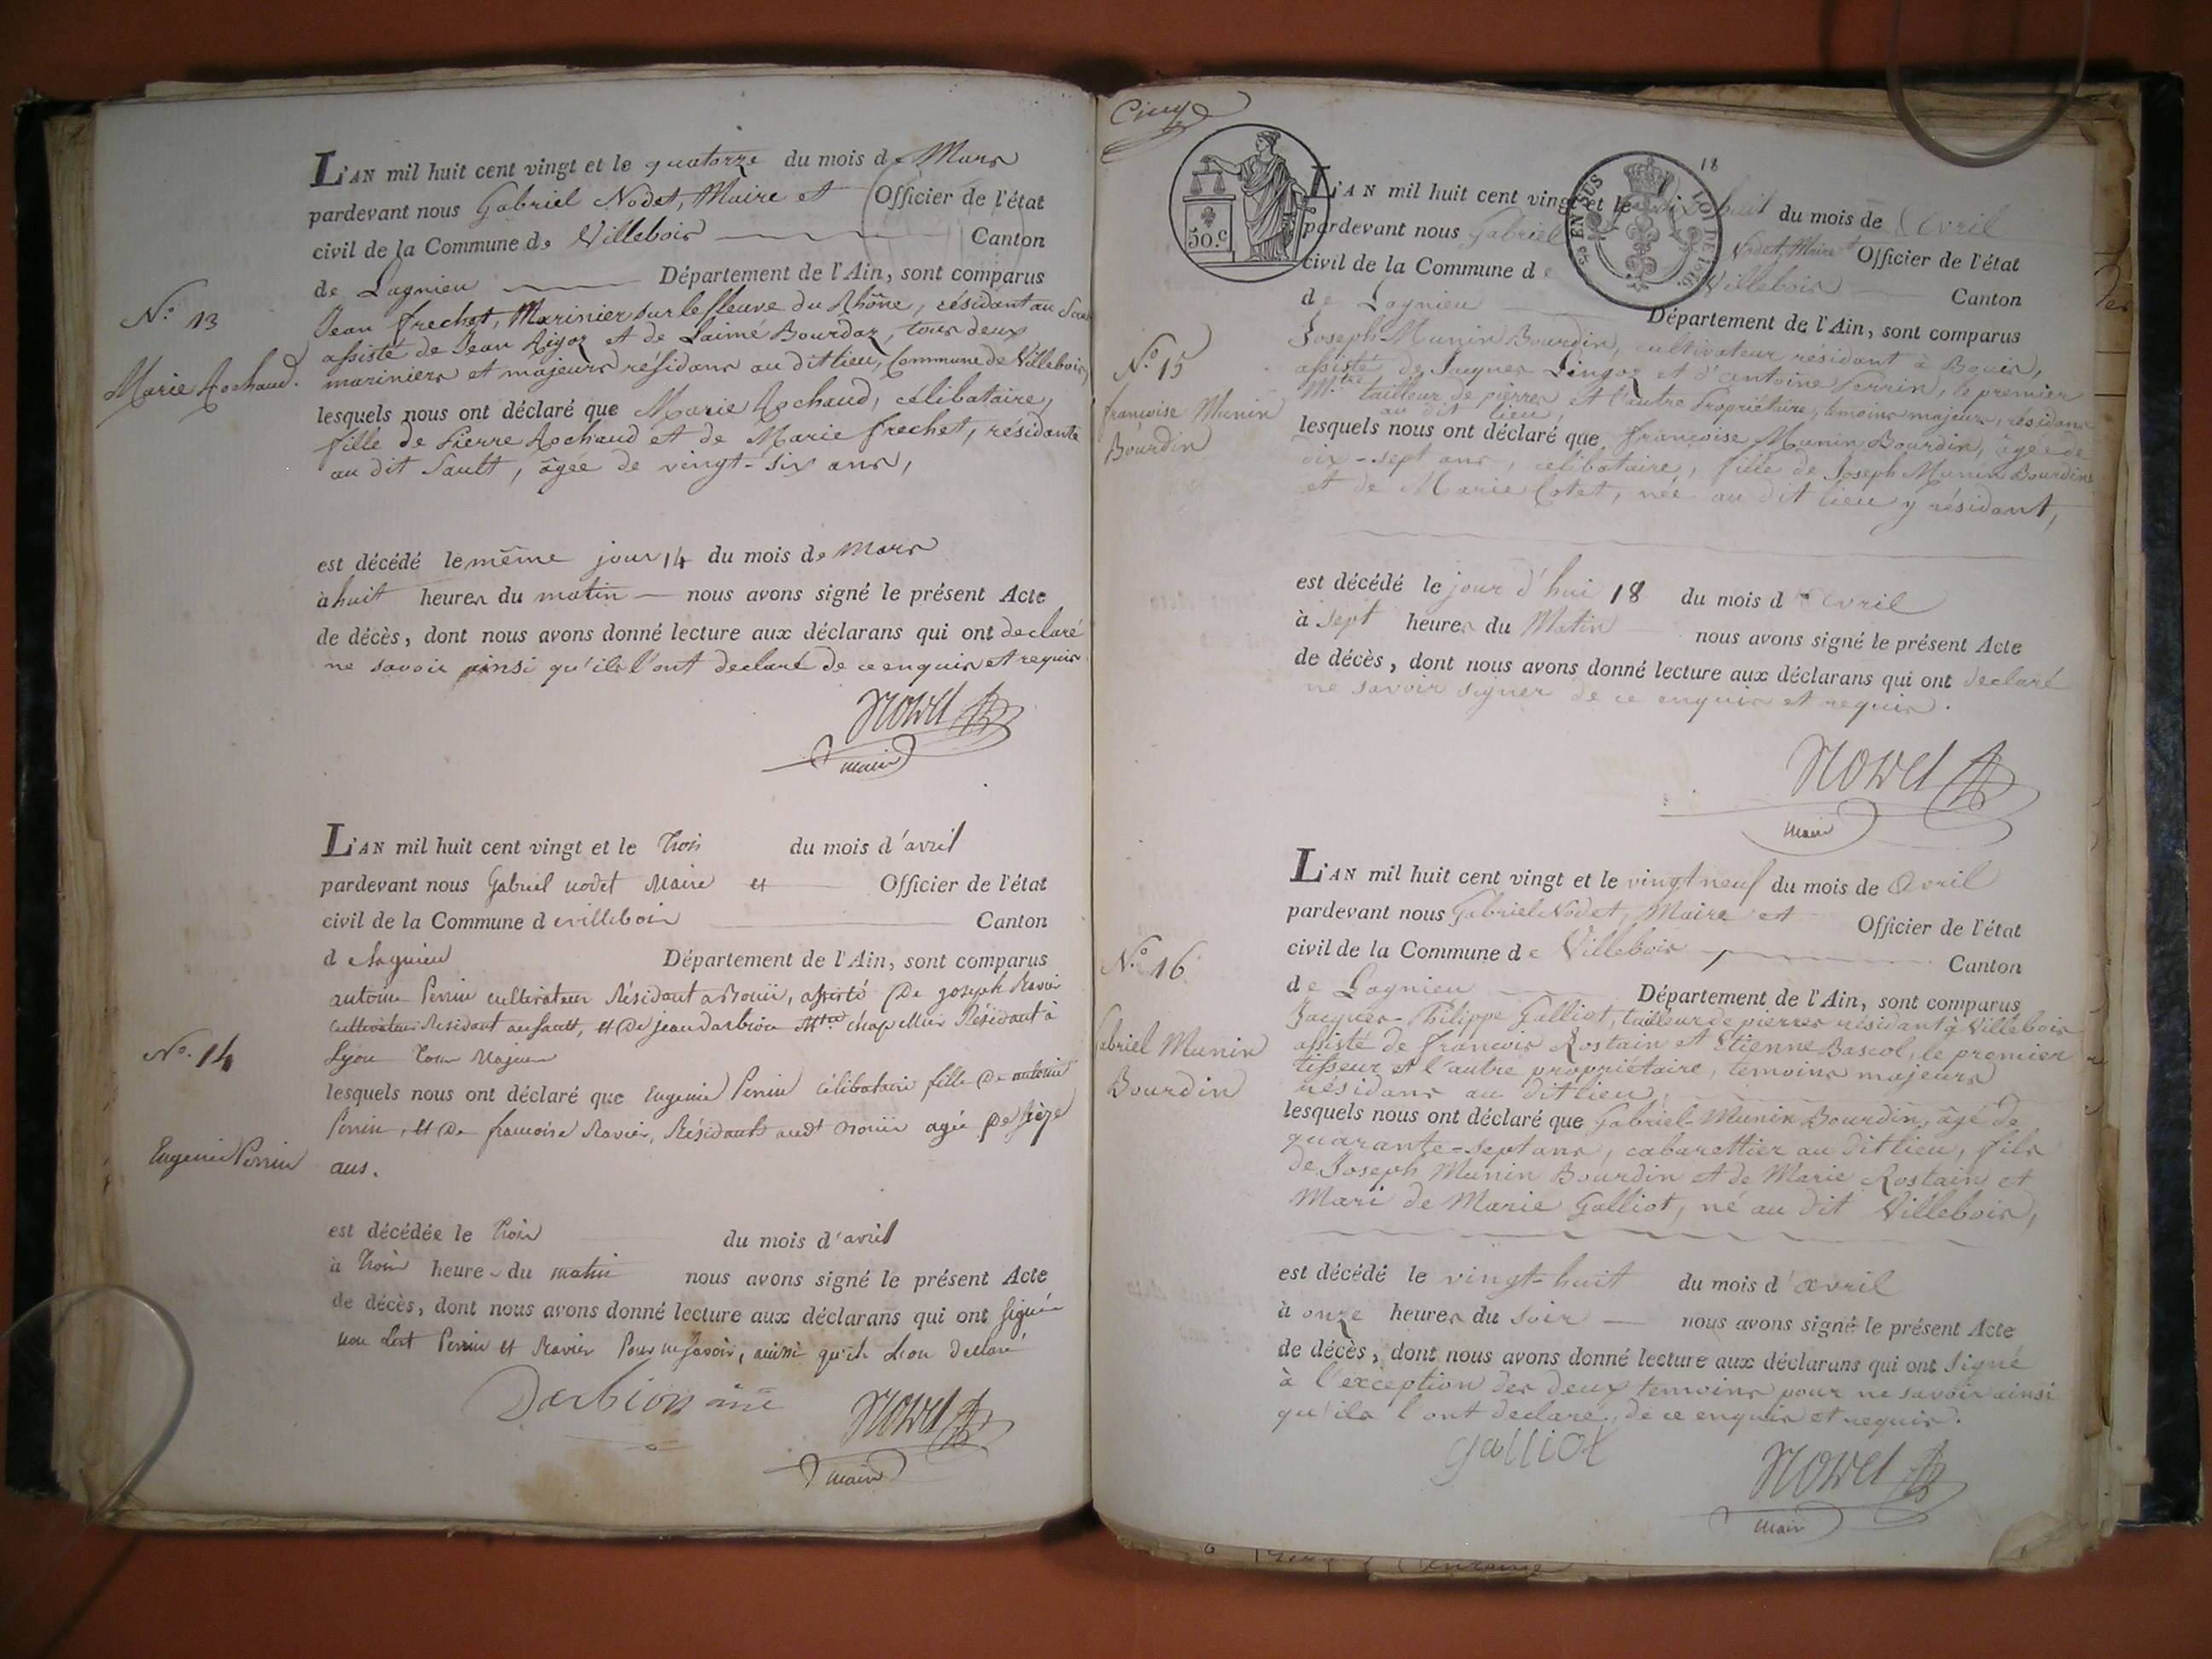 L'AN mil huit cent vingt et le quatorze du mois de Mars
pardevant nous Gabriel Nodet, Maire et Officier de l'état
civil de la Commune de Villebois Canton
de Lagnieu Département de l'Ain, sont comparus
Jean frechet, Marinier sur le fleuve du Rhône, résidant au
assisté de Jean Rigoz et de Laimé Bourdaz, tous deux
mariniers et majeurs résidans au dit lieu, Commune de Villebois,
lesquels nous ont déclaré que Marie Rochaud, célibataire,
fille de Pierre Rochaud et de Marie frechet, résidante
au dit Sault, âgée de vingt-six ans,
est décédé le même jour 14 du mois de Mars
à huit heures du matin nous avons signé le présent Acte
de décès, dont nous avons donné lecture aux déclarans qui ont declaré
ne savoir ainsi qu'ils l'ont declaré de ce enquis et requis
Nodet
maire
N.° 13
Marie Rochaud.
L'AN mil huit cent vingt et le trois du mois d'avril
pardevant nous Gabriel nodet Maire et Officier de l'état
civil de la Commune de villebois Canton
de Lagnieu Département de l'Ain, sont comparus
antoine Perrin cultivateur Résidant a Bouis, assisté De joseph Ravier
cultivateur Résidant au sault, et De jean darbion M.tre chapellier Résidant à
Lyon tous Majeurs
lesquels nous ont déclaré que Eugenie Perrin célibataire fille De antoine
Perrin, et De francoise Ravier, Résidants audt Bouis agée De seize
ans.
est décédée le trois du mois d'avril
à trois heure du matin nous avons signé le présent Acte
de décès, dont nous avons donné lecture aux déclarans qui ont signés
non Perrin et Ravier Pour ne savoir, ainsi qu'ils declaré
Darbion ainé
Nodet
maire
N.° 14
Eugenie Perrin
18
50.c
EN SUS
LOI DE 1816
L'AN mil huit cent vingt et le dix huit du mois de Avril
pardevant nous Gabriel Nodet, Maire et Officier de l'état
civil de la Commune de Villebois
de Lagnieu Canton
Département de l'Ain, sont comparus
Joseph Munin Bourdin, cultivateur résidant à Bouis,
assisté de Jacques Lingoz et d'antoine Perrin, le premier
M.tre tailleur de pierres et l'autre Propriétaire, temoins majeurs, résidans
au dit lieu,
lesquels nous ont déclaré que françoise Munin Bourdin, âgée de
dix-sept ans, célibataire, fille de Joseph Munin Bourdin
et de Marie Cotet, née au dit lieu y résidant,
est décédé le jour d'hui 18 du mois d'avril
à sept heures du Matin nous avons signé le présent Acte
de décès, dont nous avons donné lecture aux déclarans qui ont declaré
ne savoir signer de ce enquis et requis.
Nodet
maire
N.° 15
françoise Munin
Bourdin
L'AN mil huit cent vingt et le vingt neuf du mois de Avril
pardevant nous Gabriel Nodet, Maire et Officier de l'état
civil de la Commune de Villebois Canton
de Lagnieu Département de l'Ain, sont comparus
Jacques-Philippe Galliot, tailleur de pierres résidant à Villebois
assisté de francois Rostain et Etienne Bascol, le premier
tisseur et l'autre propriétaire, temoins majeurs
résidans au dit lieu,
lesquels nous ont déclaré que Gabriel-Munin Bourdin, âgé de
quarante-sept ans, cabarettier au dit lieu, fils
de Joseph Munin Bourdin et de Marie Rostain et
Mari de Marie Galliot, né au dit Villebois,
est décédé le vingt-huit du mois d'avril
à onze heures du soir nous avons signé le présent Acte
de décès, dont nous avons donné lecture aux déclarans qui ont signé
à l'exception des deux temoins pour ne savoir ainsi
qu'ils l'ont declaré, de ce enquis et requis.
galliot
Nodet
maire
N.° 16
Gabriel Munin
Bourdin